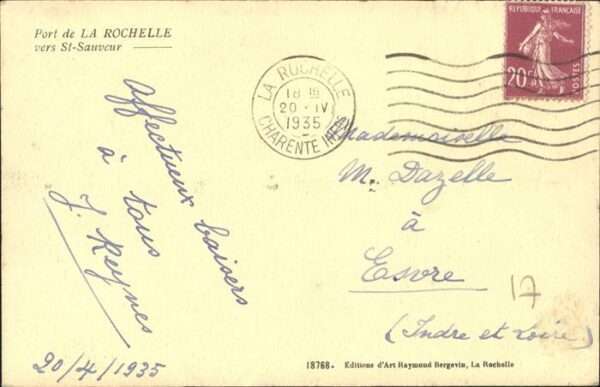 Port de LA ROCHELLE
vers St-Sauveur
REPUBLIQUE FRANÇAISE
20c
POSTES
LA ROCHELLE
18 H
20 - IV
1935
CHARENTE INFRE
Affectueux baisers
à tous
J. Reynes
20/4/1935
Mademoiselle
M. Dazelle
à
Esvre
(Indre et Loire)
17
18768. Editions d'Art Raymond Bergevin, La Rochelle